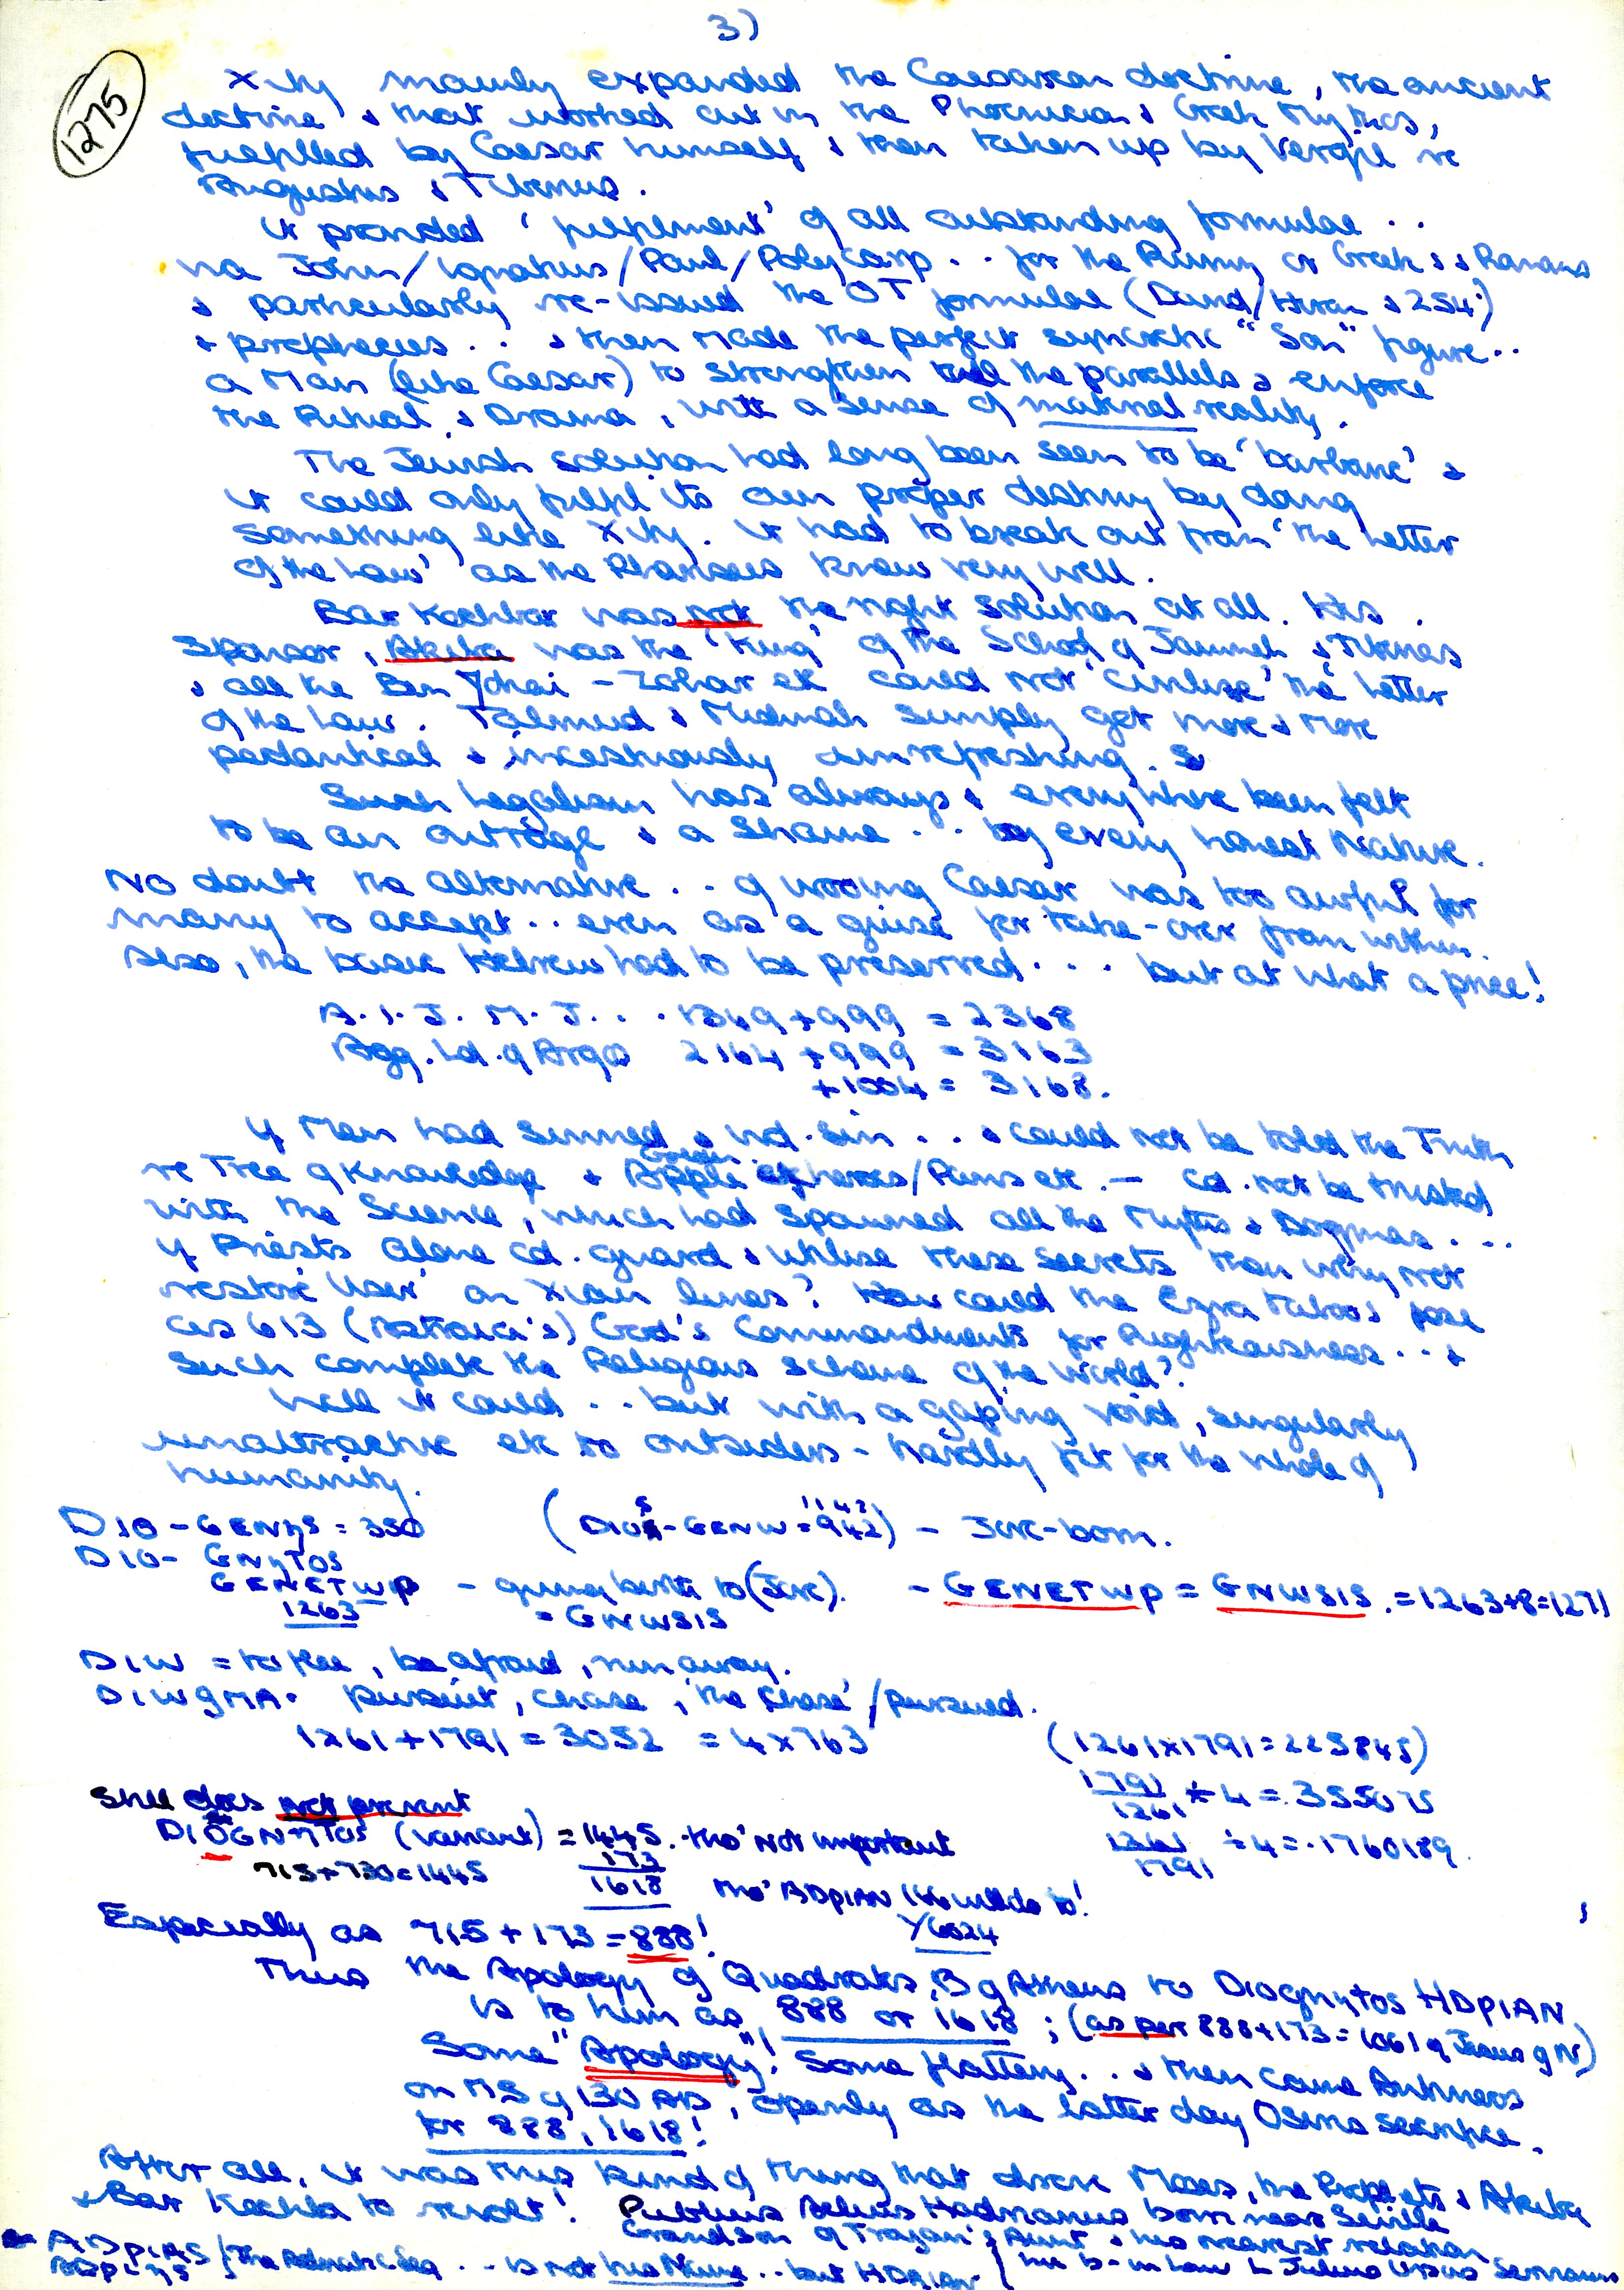 3)
1275
Xity mainly expanded the Caesarean doctrine, the ancient
doctrine & that worked out in the Phoenician & Greek Mythos,
fulfilled by Caesar himself & then taken up by Vergil re
Augustus & Tiberius.
It provided 'fulfilment' of all outstanding formulae ..
via John/Ignatius/Paul/PolyCarp .. for the Greeks & Romans
& particularly re-issued the OT formulae (David/Hiram & 254)
& prophecies .. & then made the perfect syncretic "Son" figure ..
a Man (like Caesar) to strengthen the parallels & enforce
the Ritual & Drama, with a sense of material reality.
The Jewish solution had long been seen to be 'barbaric' &
it could only fulfil its own proper destiny by doing
something like Xity. It had to break out from 'the Letter
of the Law' as the Pharisees knew very well.
Bar Kochba was not the right solution at all. His
Sponsor, Akiba was the 'King' of the School of Jamneh & Tiberias
& all the Ben Johai - Zohar etc could not 'civilise' the 'Letter
of the Law. Talmud & Midrash simply get more & more
pedantical & incestuously unrefreshing.
Such Legalism has always & everywhere been felt
to be an outrage & a Shame .. by every honest Nature.
No doubt the alternative .. of wooing Caesar was too awful for
many to accept .. even as a guise for take-over from within.
Also, the basic Hebrew had to be preserved ... but at what a price!
A.I.J. M.J. .. 1369 + 999 = 2368
Agg. Ld. of Argo 2164 + 999 = 3163
+ 1004 = 3168.
If Man had sinned & did sin .. & could not be told the Truth
re Tree of Knowledge & Golden Apple heroes/Rams etc. — cd. not be trusted
with the Science, which had spawned all the Myths & Dogmas ...
if Priests alone cd. guard & utilise these secrets then why not
restore 'User' on Xian lines? How could the Ezra taboos pose
as 613 (Astraea's) God's Commandments for Righteousness .. &
such complete the Religious scheme of the World?
Well it could .. but with a gaping void, singularly
unattractive etc to outsiders - hardly fit for the whole of
humanity.
DIO-GENηS = 350 (DIOS-GENW = 942) - Jove-born.
DIO-GNηTOS
GENETWρ - giving birth to (Jove). - GENETWρ = GNWSIS = 1263+8=1271
1263 = GNWSIS
DIW = to flee, be afraid, run away.
DIWgMA. pursuit, chase, 'the chase'/pursued.
1261 + 1791 = 3052 = 4x763 (1261x1791=225845)
1791/1261 ÷ 4 = .355075
1261/1791 ÷ 4 = .1760189
Still does not prevent
DIOGNηTOS (variant) = 1445. tho' not important
715+730=1445 173
1618 tho' ADρIAN 166 will do it!
Especially as 715 + 173 = 888! Y6024
Thus the Apology of Quadratus, B of Athens to Diognηtos HDρIAN
is to him as 888 or 1618; (as per 888+173 = 1061 of Jesus of N)
Some "Apology"! Some flattery .. & then came Antinous
on of 130 AD, openly as the latter day Osiris sacrifice.
for 888, 1618!
After all, it was this kind of thing that drove Moses, the Prophets & Akiba
& Bar Kochba to revolt! Publius Aelius Hadrianus born near Seville
Grandson of Trajan's Aunt & his nearest relation
ADρIAS / The Adriatic Sea .. is not his Name .. but HDρIAN
his b-in law L Julius Ursus Servianus